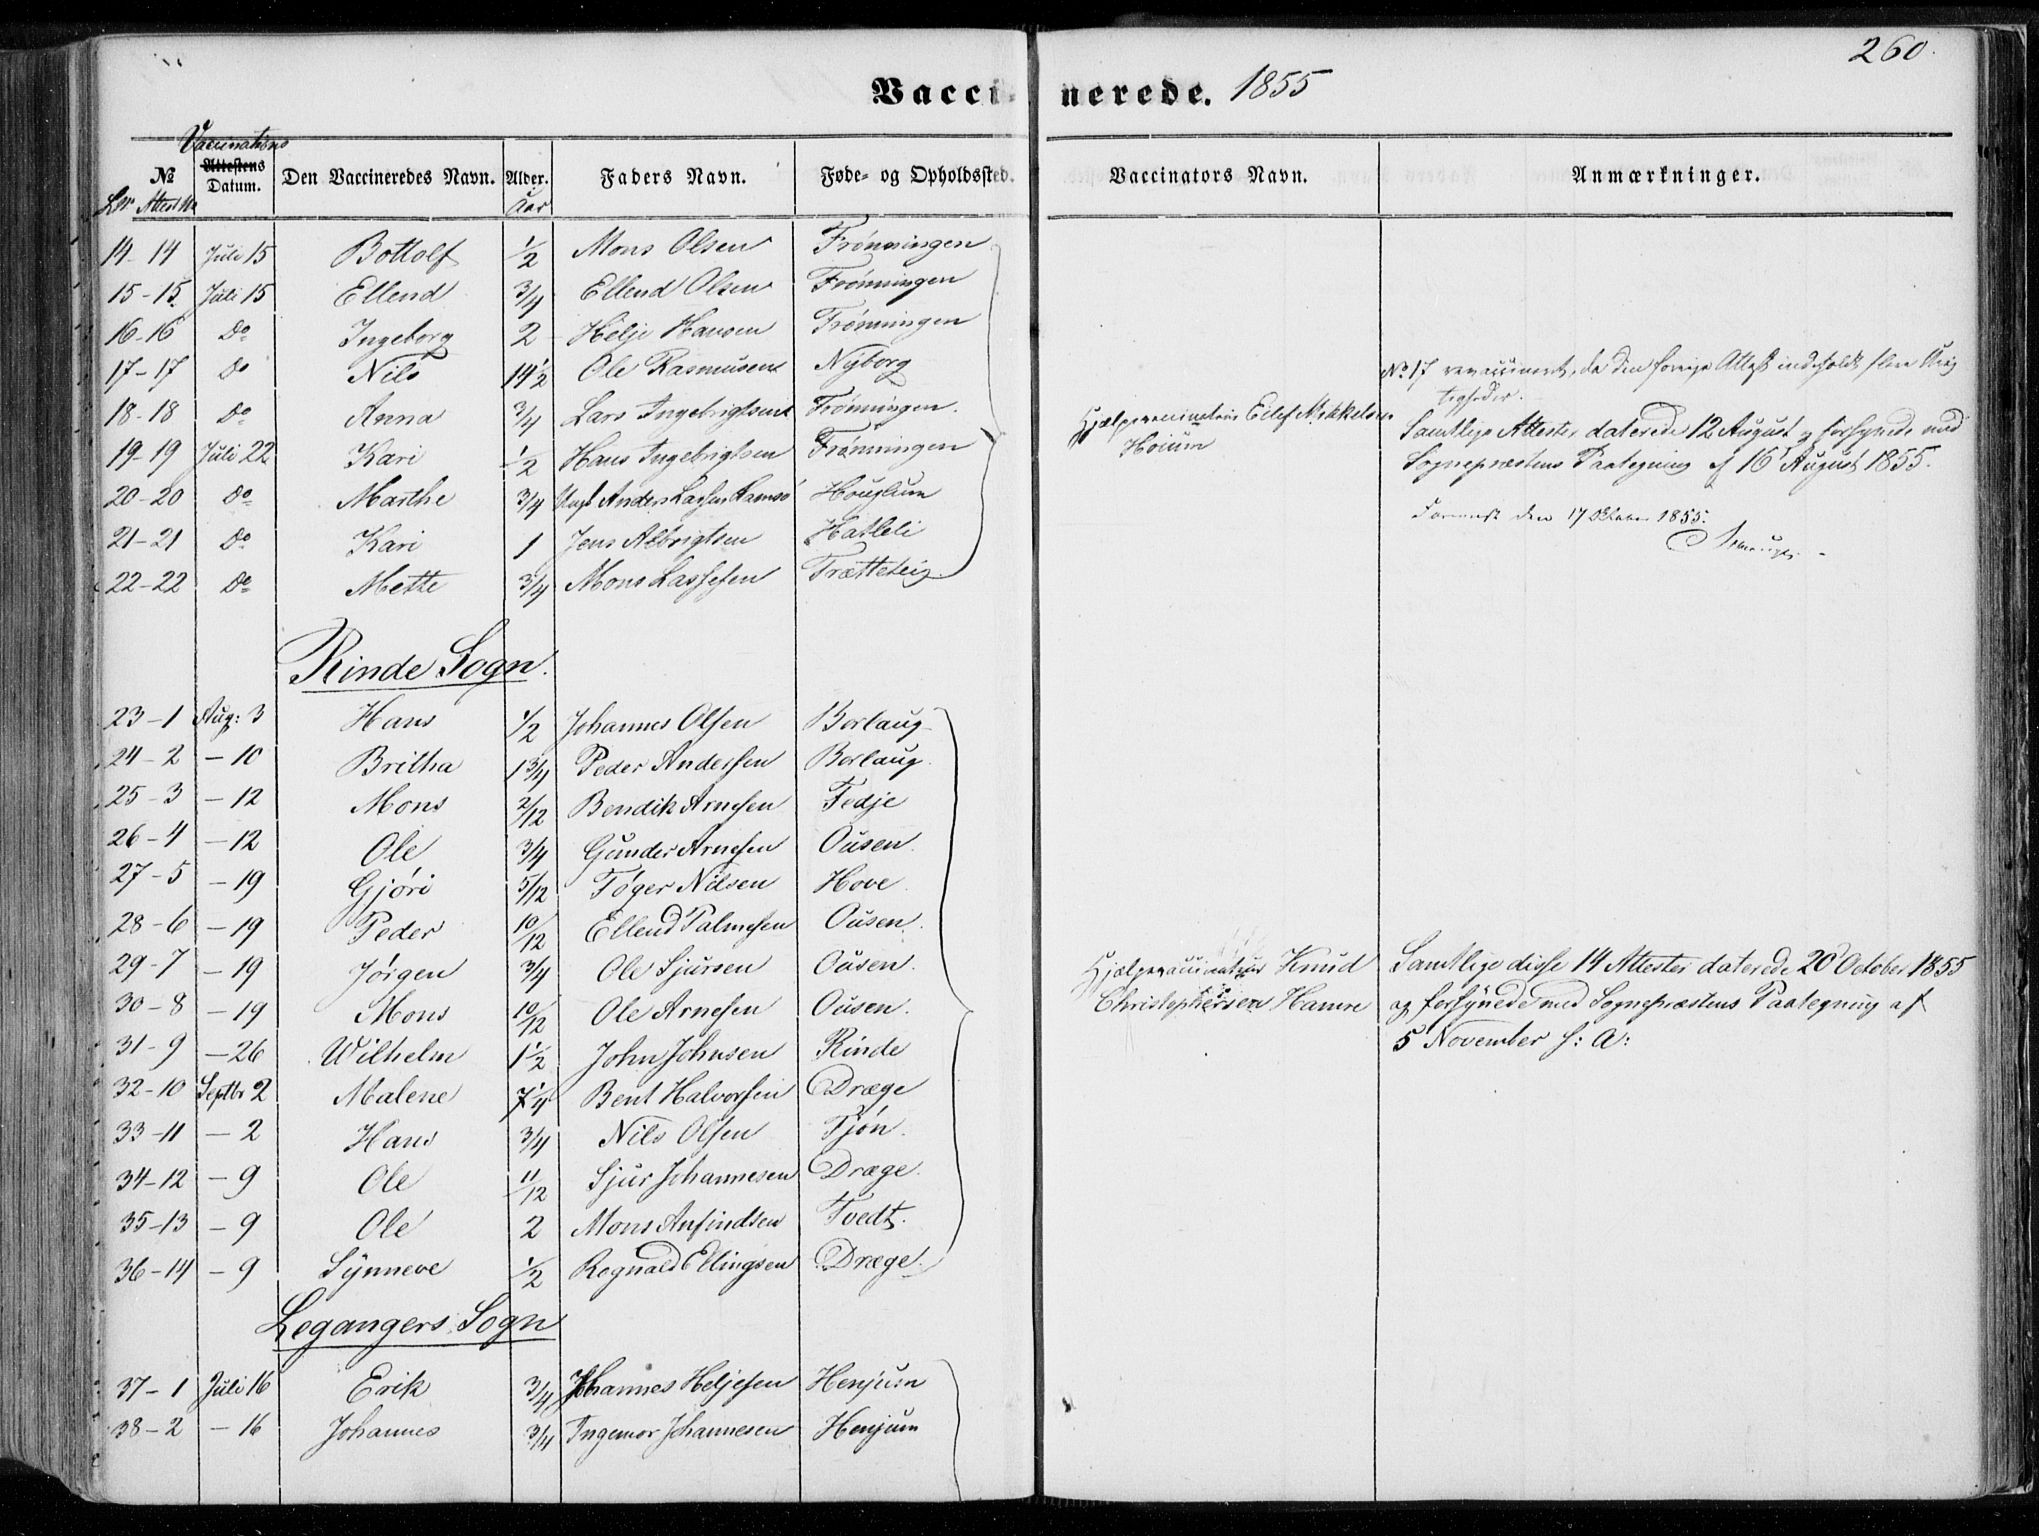 260.
Vaccinerede. 1855
Vaccinations
№ Attestens Datum. Den Vaccineredes Navn. Alder. Faders Navn. Føde- og Opholdssted. Vaccinators Navn. Anmærkninger.
Attest № Aar
14-14 Juli 15 Bottolf 1/2 Mons Olsen Frønningen
15-15 Juli 15 Ellend 3/4 Ellend Olsen Frønningen
16-16 Do Ingeborg 2 Helje Hansen Frønningen
17-17 Do Nils 14 1/2 Ole Rasmusen Nyborg
№ 17 revaccineret, da den forrige Attest indeholdt flere
18-18 Do Anna 3/4 Lars Ingebrigtsen Frønningen.
Hjælpevaccinateur Eilef Mikkelsen Høium
Samtlige Attester daterede 12 August og forsynede med
19-19 Juli 22 Kari 1/2 Hans Ingebrigtsen Frønningen
Sognepræstens Paategning af 16 August 1855.
20-20 Do Marthe 3/4 Anders Lassesen Houglum
den 17 Oktober 1855.
21-21 Do Kari 1 Jens Albrigtsen Hatleli
22-22 Do Mette 3/4 Mons Lassesen Trætteteig
Rinde Sogn.
23-1 Aug: 3 Hans 1/2 Johannes Olsen Borlaug
24-2 -10 Britha 1 3/4 Peder Andersen Borlaug.
25-3 -12 Mons 2/12 Bendik Arnesen Fedje
26-4 -12 Ole 3/4 Gunder Arnesen Ousen.
27-5 -19 Gjøri 5/12 Tøger Nilsen Hove.
28-6 -19 Peder 10/12 Ellend Palmesen Ousen.
29-7 -19 Jørgen 3/4 Ole Sjursen Ousen.
Hjælpevaccinateur Knud Christophersen Hamre
Samtlige disse 14 Attester daterede 20 October 1855
30-8 -19 Mons 10/12 Ole Arnesen Ousen.
og forsynede med Sognepræstens Paategning af
31-9 -26 Wilhelm 1 1/2 John Johnsen Rinde
5 November s: A:
32-10 Septbr 2 Malene 7 1/4 Bent Halvorsen Dræge
33-11 -2 Hans 3/4 Nils Olsen Tjøn.
34-12 -9 Ole 11/12 Sjur Johannesen Dræge.
35-13 -9 Ole 2 Mons Anfindsen Tvedt.
36-14 -9 Synneve 1/2 Rognald Ellingsen Dræge.
Legangers Sogn
37-1 Juli 16 Erik 3/4 Johannes Heljesen Henjum
38-2 -16 Johannes 3/4 Ingemor Johannesen Henjum